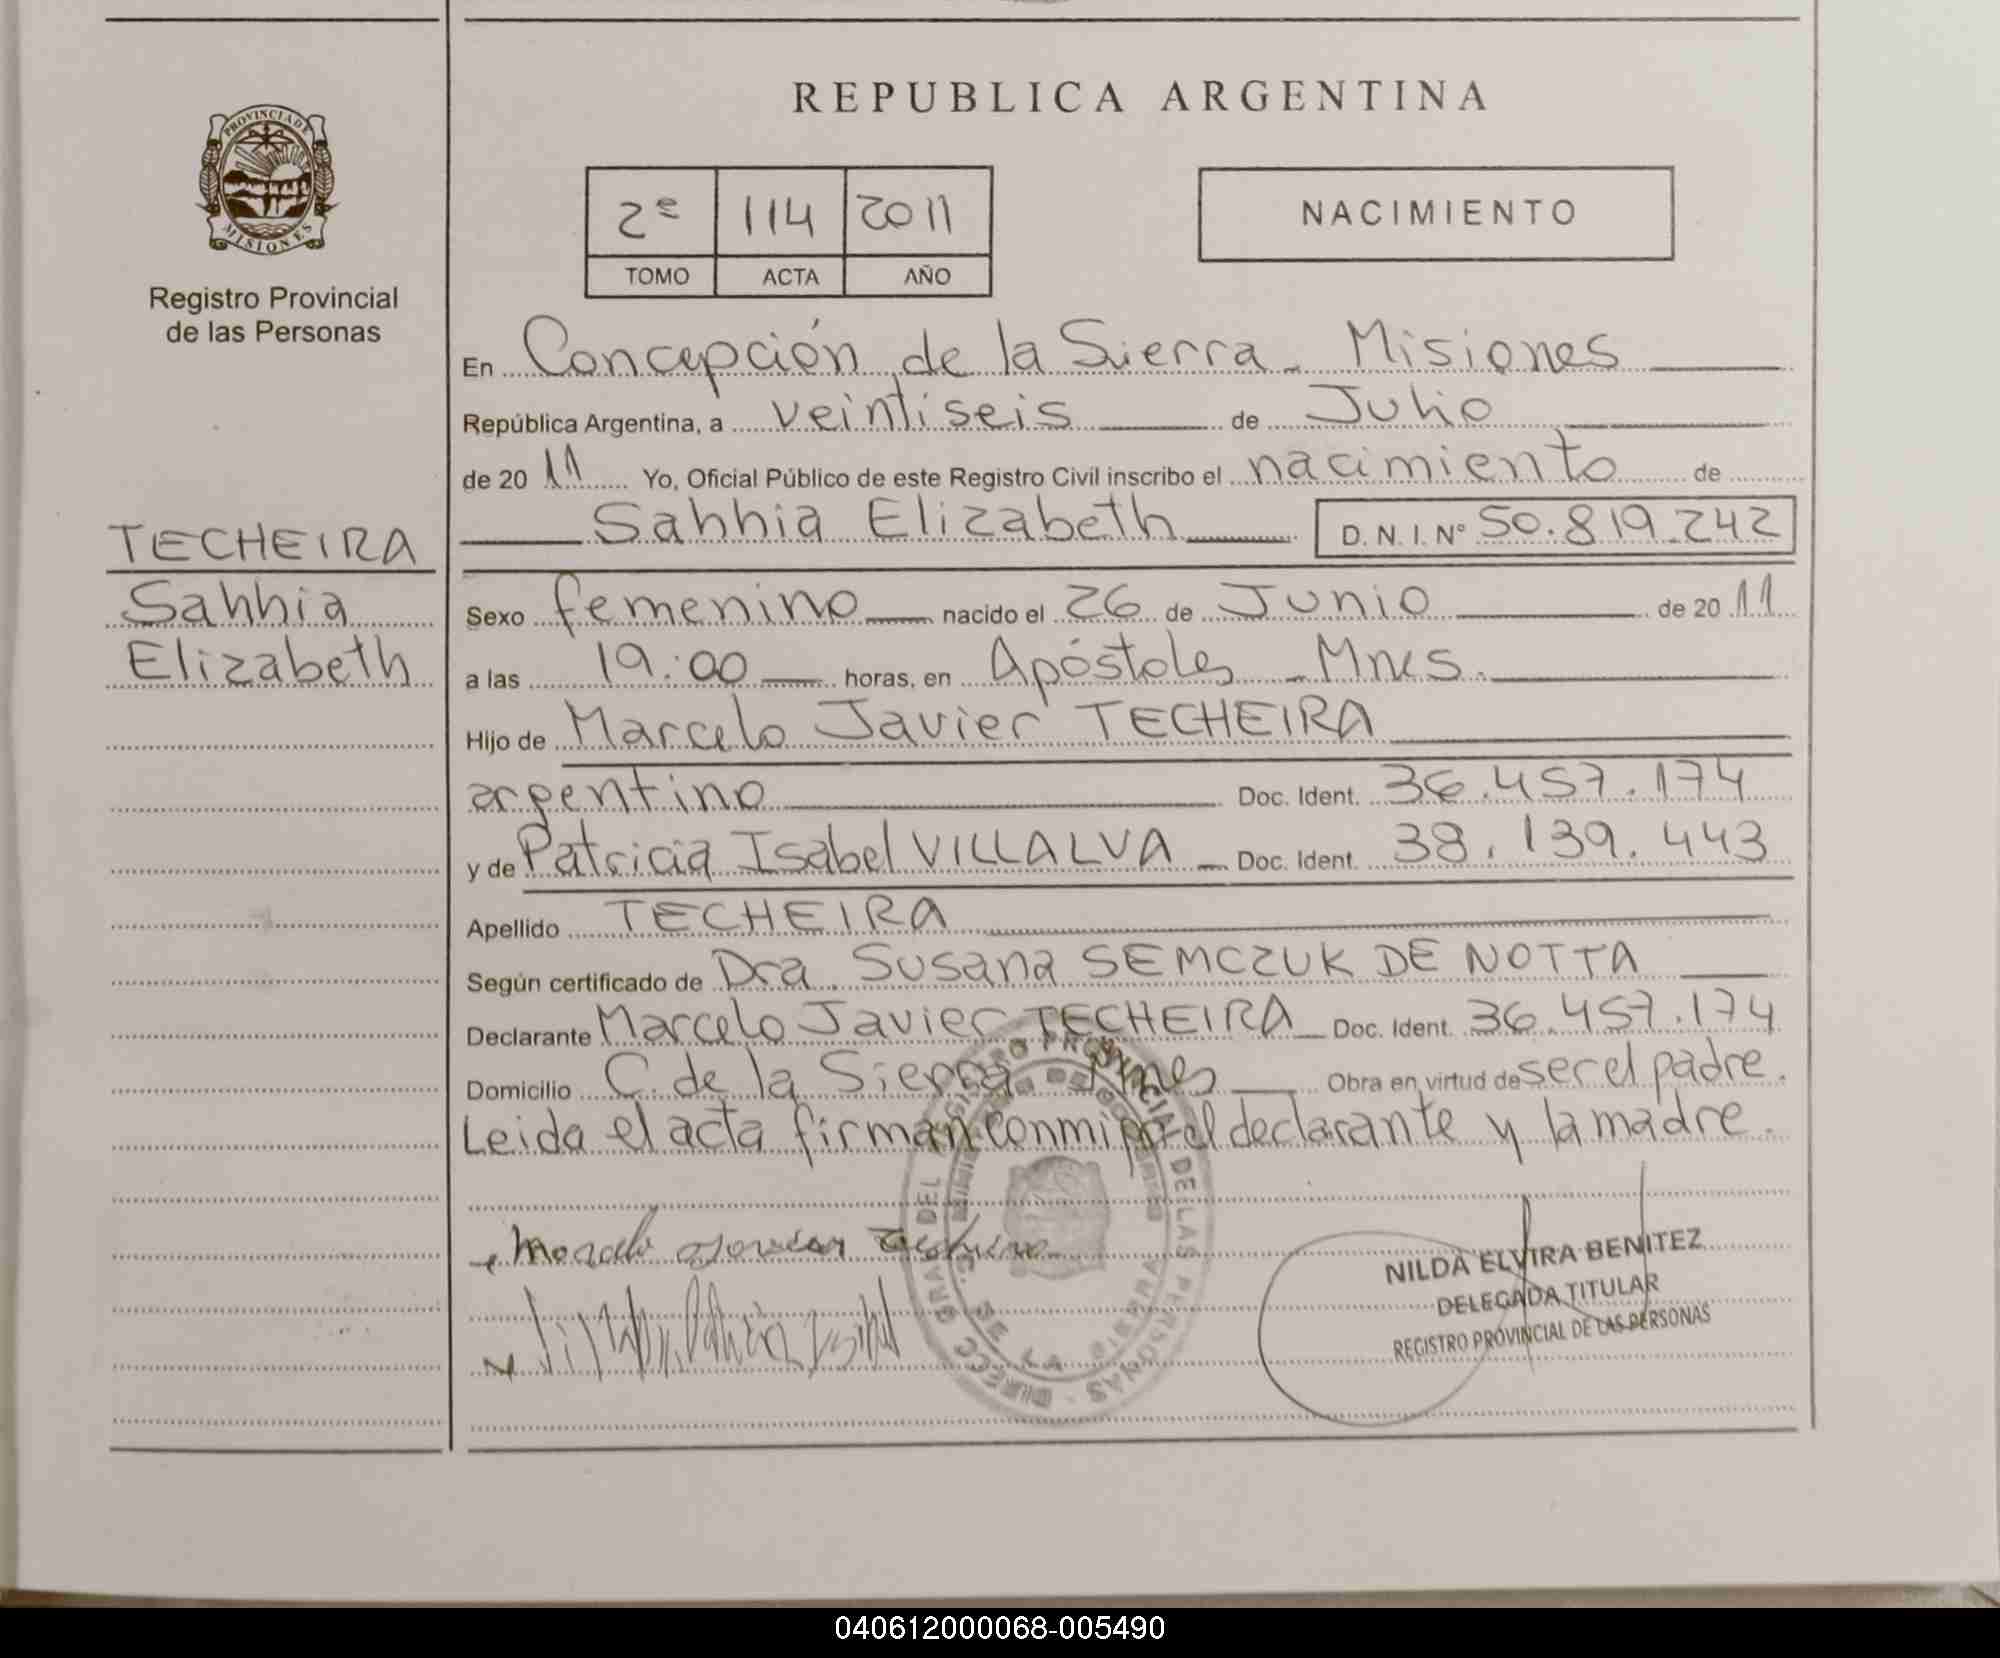 REPUBLICA ARGENTINA
PROVINCIA DE
MISIONES
Registro Provincial
de las Personas
2º 114 2011
TOMO ACTA AÑO
NACIMIENTO
En Concepción de la Sierra - Misiones
República Argentina, a veintiseis de Julio
de 2011 Yo, Oficial Público de este Registro Civil inscribo el nacimiento de
Sahhia Elizabeth D. N. I. Nº 50.819.242
TECHEIRA
Sahhia
Elizabeth
Sexo femenino nacido el 26 de Junio de 2011
a las 19:00 horas, en Apóstoles - Mnes.
Hijo de Marcelo Javier TECHEIRA
argentino Doc. Ident. 36.457.174
y de Patricia Isabel VILLALVA - Doc. Ident. 38.139.443
Apellido TECHEIRA
Según certificado de Dra. Susana SEMCZUK DE NOTTA
Declarante Marcelo Javier TECHEIRA - Doc. Ident. 36.457.174
Domicilio C. de la Sierra Mnes Obra en virtud de ser el padre.
Leida el acta firman conmigo el declarante y la madre.
DIRECC GRAL DEL REGISTRO PROVINCIAL DE LAS PERSONAS
NILDA ELVIRA BENITEZ
DELEGADA TITULAR
REGISTRO PROVINCIAL DE LAS PERSONAS
040612000068-005490